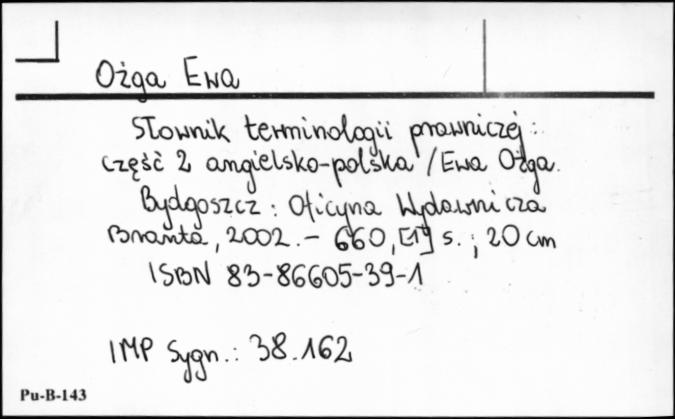 Ożga Ewa
Słownik terminologii prawniczej:
część 2 angielsko-polska / Ewa Ożga.
Bydgoszcz : Oficyna Wydawnicza
Branta, 2002. - 660, [1] s. ; 20 cm
ISBN 83-86605-39-1
IMP Sygn.: 38.162
Pu-B-143